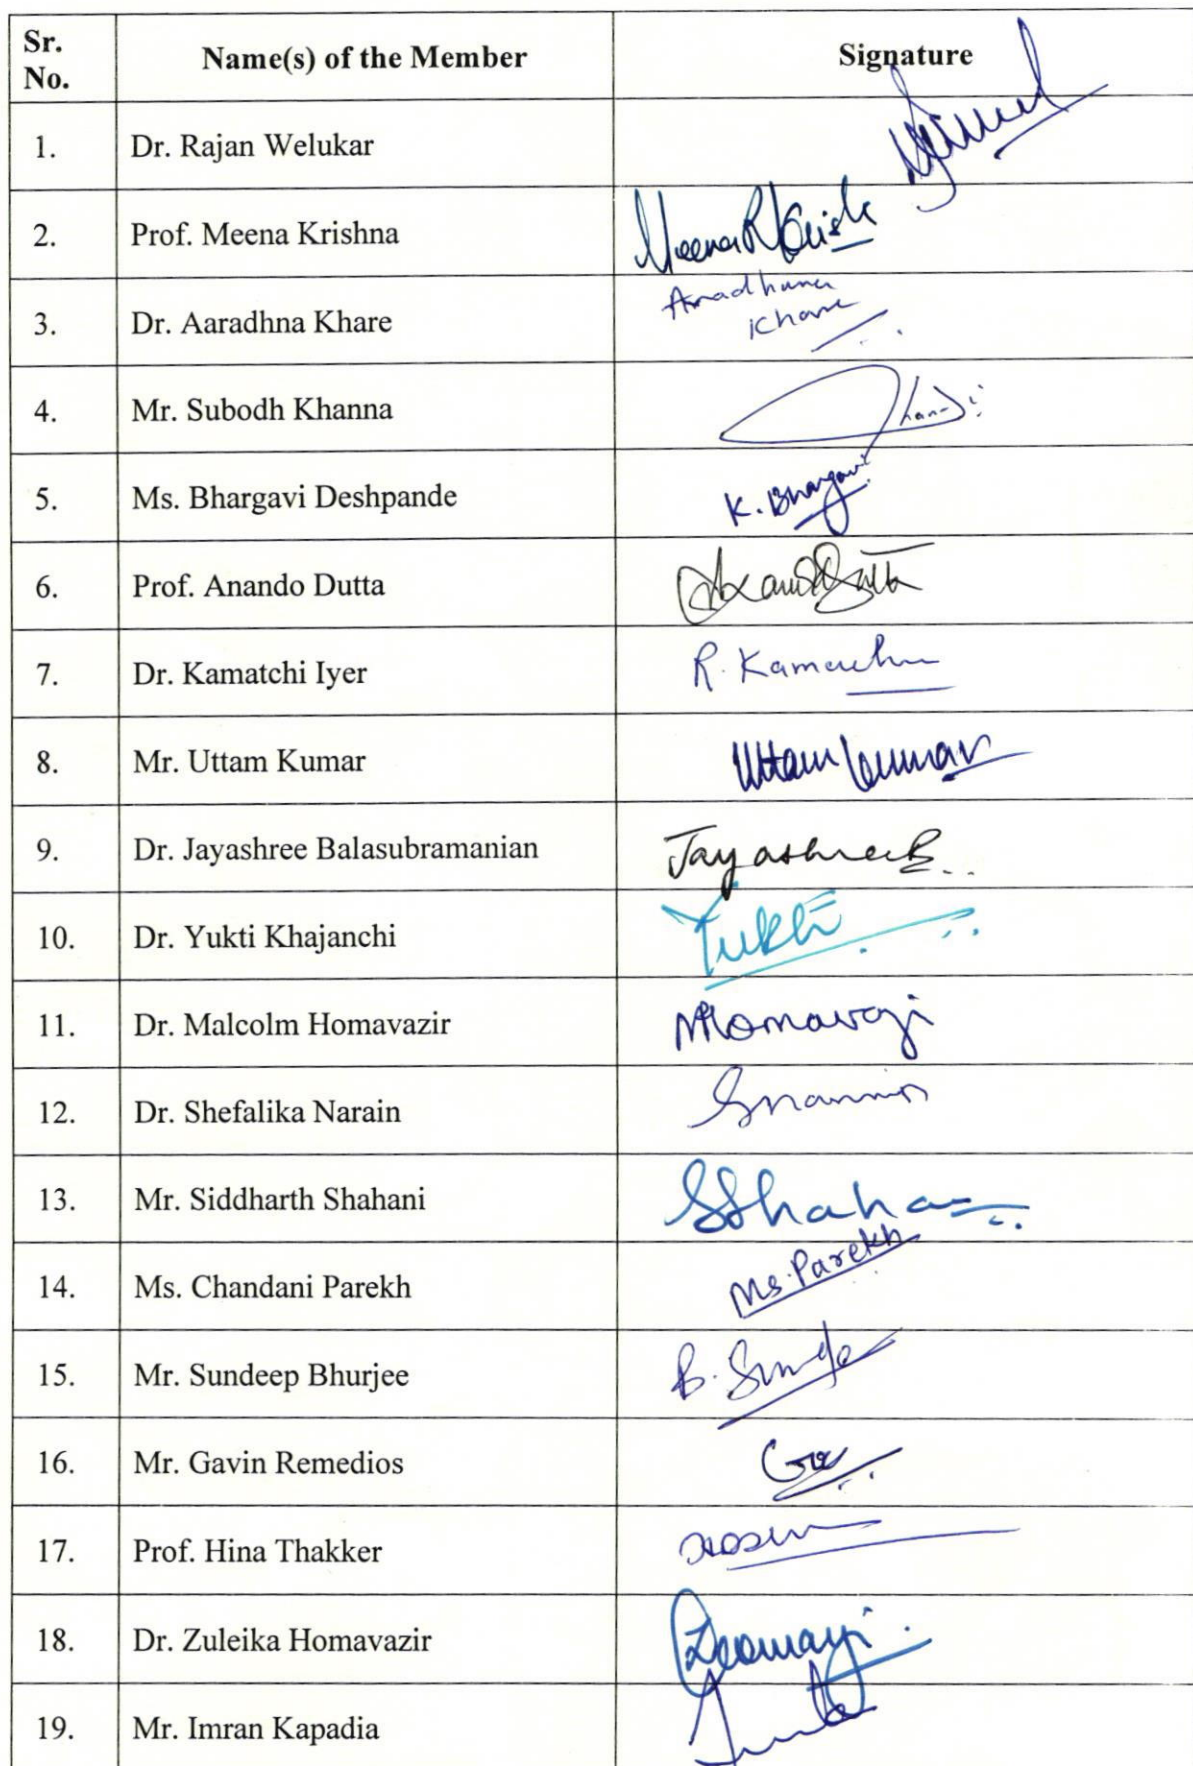 Sr. No. Name(s) of the Member Signature
1. Dr. Rajan Welukar
2. Prof. Meena Krishna
3. Dr. Aaradhna Khare Aradhana
Khare
4. Mr. Subodh Khanna
5. Ms. Bhargavi Deshpande K. Bhargavi
6. Prof. Anando Dutta
7. Dr. Kamatchi Iyer R. Kamachi
8. Mr. Uttam Kumar Uttam Kumar
9. Dr. Jayashree Balasubramanian Jayashree B.
10. Dr. Yukti Khajanchi Yukti
11. Dr. Malcolm Homavazir
12. Dr. Shefalika Narain
13. Mr. Siddharth Shahani
14. Ms. Chandani Parekh Ms. Parekh
15. Mr. Sundeep Bhurjee
16. Mr. Gavin Remedios
17. Prof. Hina Thakker
18. Dr. Zuleika Homavazir
19. Mr. Imran Kapadia